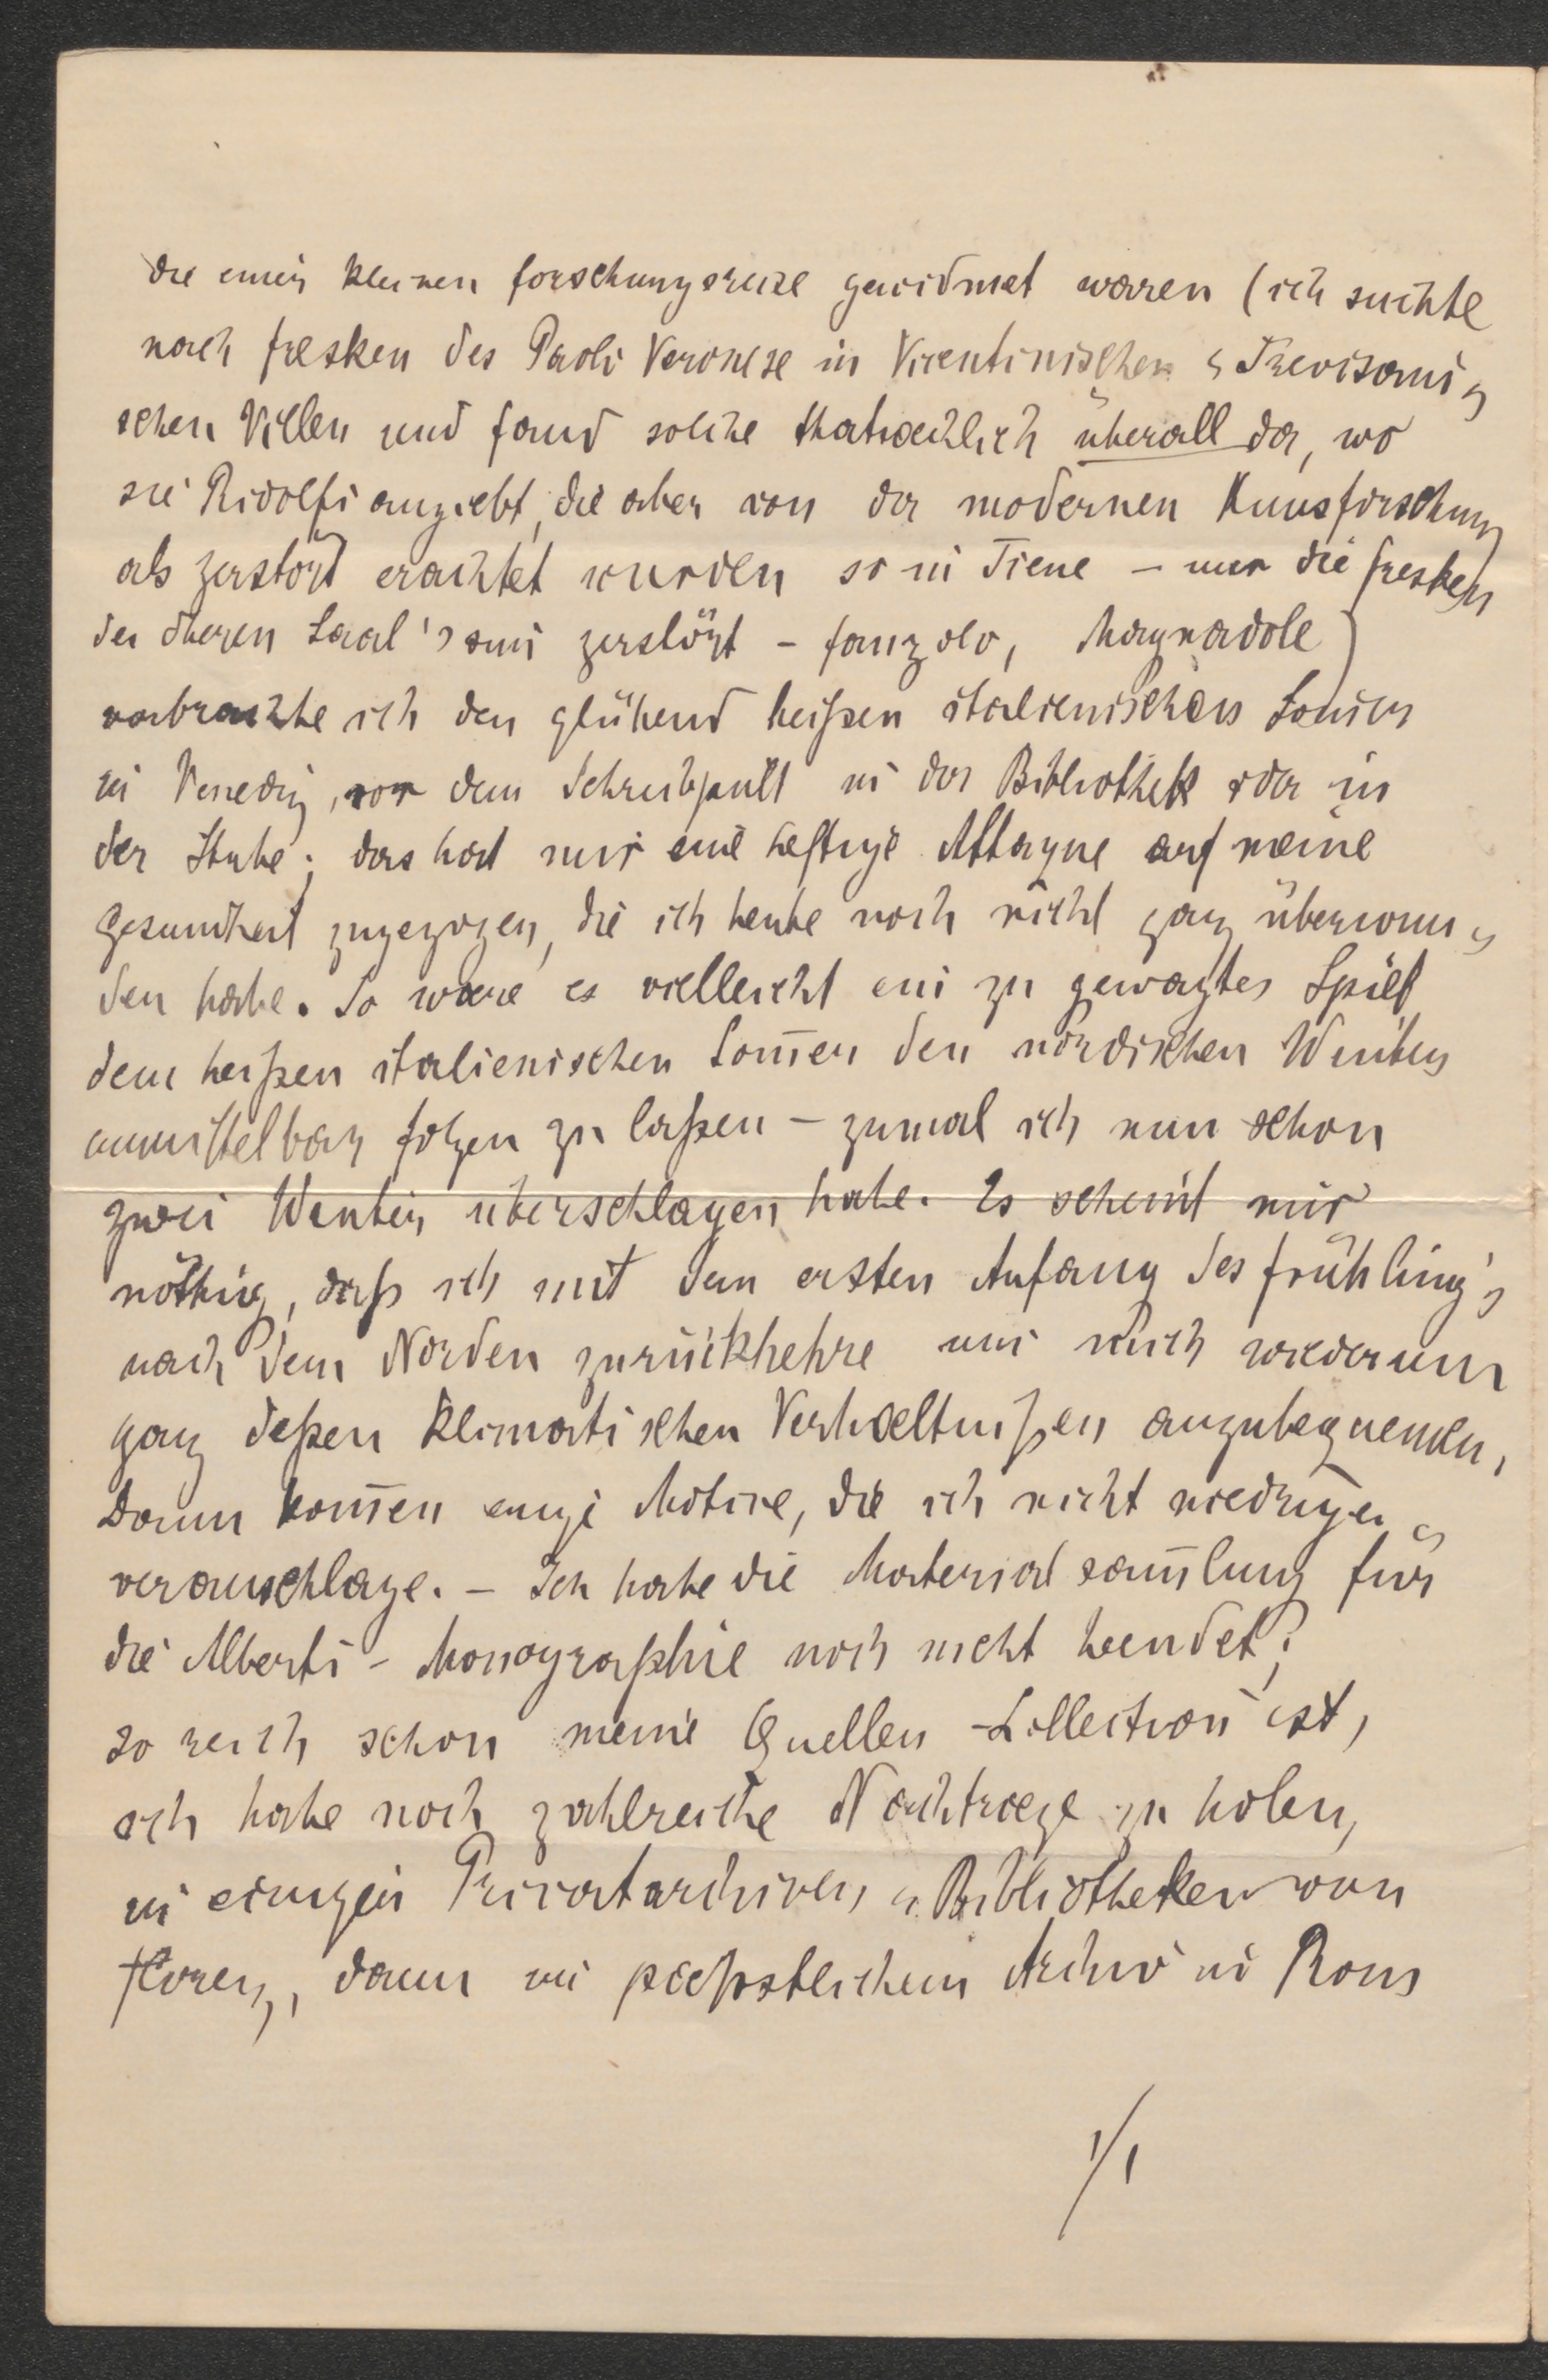 die einer kleinen Forschungsreise gewidmet waren (ich suchte
nach Fresken des Paolo Veronese in Vicentinischen u Trevisani-
schen Villen und fand solche thatsaechlich überall da, wo
sie Ridolfi angiebt, die aber von der modernen Kunsforschung
als zerstört erachtet wurden so in Tiene – nur die Fresken
des oberen Saal's sind zerstört – Fanzolo, Magnadole)
verbrachte ich den glühend heißen italienischen Som̅er
in Venedig, vor dem Schreibpult in der Bibliothek oder in
der Stube; das hat mir eine heftige Attaque auf meine
Gesundheit zugezogen, die ich heute noch nicht ganz überwun-
den habe. So waere es vielleicht ein zu gewagtes Spiel
dem heißen italienischen Som̅er den nordischen Winter
unmittelbar folgen zu laßen – zumal ich nun schon
zwei Winter überschlagen habe. Es scheint mir
nöthig, daß ich mit dem ersten Anfang des Frühling's
nach dem Norden zurückkehre um mich wiederum
ganz deßen klimatischen Verhaeltnißen anzubequemen,
Dann kom̅en einige Motive, die ich nicht niedriger
veranschlage. – Ich habe die Material sam̅lung für
die Alberti - Monographie noch nicht beendet;
so reich schon meine Quellen - Collection ist,
ich habe noch zahlreiche Nachtraege zu holen,
in einigen Privatarchiven u. Bibliotheken von
Florenz, dann im paepstlichem Archiv in Rom
1/1